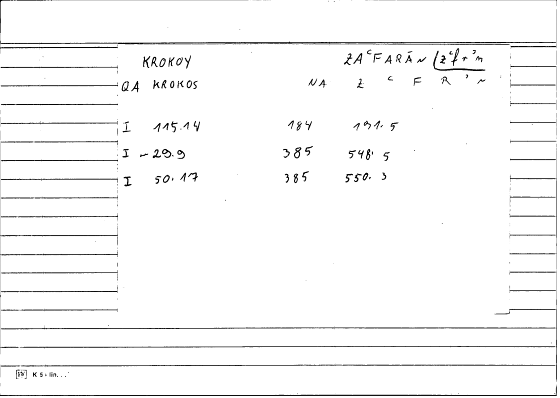 KROKOY ZAᶜFARĀN (zᶜfrʾn
QA KROKOS NA Z ᶜ F R ʾ N
I 115.14 184 191.5
I 29.9 385 548.5
I 50.17 385 550.3
K 5 - lin...